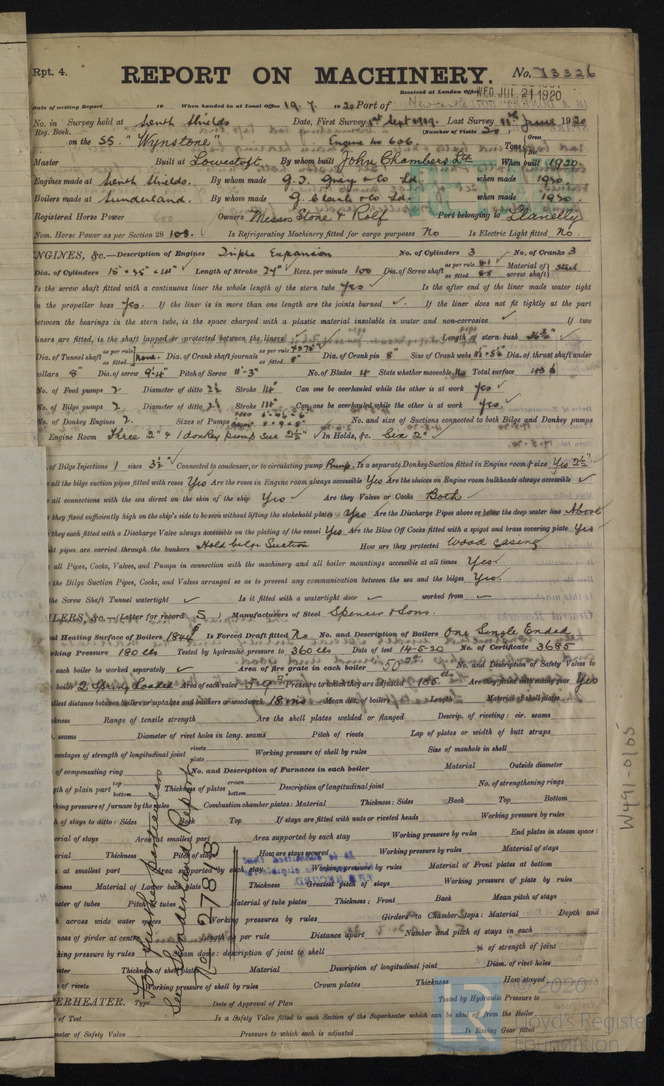 Rpt. 4.
REPORT ON MACHINERY. No. 73326
Received at London Office WED. JUL 21 1920
Date of writing Report 19 When handed in at Local Office 19.7.1920 Port of
No. in Survey held at South Shields Date, First Survey 1st Sept 1919. Last Survey 11th June 1920
Reg. Book. (Number of Visits 20)
on the SS. "Wynstone" Engine No 606. Tons Gross Net
Master Built at Lowestoft By whom built John Chambers Ltd When built 1920.
Engines made at South Shields. By whom made G. T. Gray & Co Ld. when made 1920
Boilers made at Sunderland. By whom made G. Clark & Co Ld. when made 1920.
Registered Horse Power Owners Messrs Stone & Rolf Port belonging to Llanelly
Nom. Horse Power as per Section 28 108. Is Refrigerating Machinery fitted for cargo purposes No Is Electric Light fitted No.
ENGINES, &c.—Description of Engines Triple Expansion No. of Cylinders 3 No. of Cranks 3
Dia. of Cylinders Length of Stroke Revs. per minute 100 Dia. of Screw shaft as per rule 8.1 as fitted 8.5 Material of screw shaft steel
Is the screw shaft fitted with a continuous liner the whole length of the stern tube yes Is the after end of the liner made water tight
in the propeller boss yes. If the liner is in more than one length are the joints burned If the liner does not fit tightly at the part
between the bearings in the stern tube, is the space charged with a plastic material insoluble in water and non-corrosive If two
liners are fitted, is the shaft lapped or protected between the liners Length of stern bush
Dia. of Tunnel shaft as per rule as fitted Dia. of Crank shaft journals as per rule as fitted 8" Dia. of Crank pin 8" Size of Crank webs Dia. of thrust shaft under
collars 8" Dia. of screw 9-4" Pitch of Screw 11-3" No. of Blades 4 State whether moveable No Total surface
No. of Feed pumps 2 Diameter of ditto 2½ Stroke 14" Can one be overhauled while the other is at work Yes
No. of Bilge pumps 2 Diameter of ditto 2½ Stroke 14" Can one be overhauled while the other is at work Yes.
No. of Donkey Engines 2. Sizes of Pumps No. and size of Suctions connected to both Bilge and Donkey pumps
Engine Room Three 2" & 1 donkey pump suc 2½" In Holds, &c. Six 2"
of Bilge Injections 1 sizes 3½" Connected to condenser, or to circulating pump Pump. Is a separate Donkey Suction fitted in Engine room & size Yes 2½"
all the bilge suction pipes fitted with roses Yes Are the roses in Engine room always accessible Yes Are the sluices on Engine room bulkheads always accessible
all connections with the sea direct on the skin of the ship Yes Are they Valves or Cocks Both
they fixed sufficiently high on the ship's side to be seen without lifting the stokehold plates Yes Are the Discharge Pipes above or below the deep water line Above
they each fitted with a Discharge Valve always accessible on the plating of the vessel Yes Are the Blow Off Cocks fitted with a spigot and brass covering plate Yes
at pipes are carried through the bunkers Hold bilge Suction How are they protected Wood casing
all Pipes, Cocks, Valves, and Pumps in connection with the machinery and all boiler mountings accessible at all times Yes.
the Bilge Suction Pipes, Cocks, and Valves arranged so as to prevent any communication between the sea and the bilges Yes.
the Screw Shaft Tunnel watertight Is it fitted with a watertight door worked from
LERS, &c.—(Letter for record S) Manufacturers of Steel Spencer & Sons
al Heating Surface of Boilers 1844 Is Forced Draft fitted No No. and Description of Boilers One Single Ended
king Pressure 180 lbs Tested by hydraulic pressure to 360 lbs Date of test 14-5-20 No. of Certificate 3685
each boiler be worked separately Area of fire grate in each boiler 50 No. and Description of Safety Valves to
boiler 2 Spring Loaded Area of each valve Pressure to which they are adjusted 185 lbs Are they fitted with easing gear Yes
llest distance between boilers or uptakes and bunkers or woodwork 18 ins Mean dia. of boilers Length Material of shell plates
kness Range of tensile strength Are the shell plates welded or flanged Descrip. of riveting: cir. seams
seams Diameter of rivet holes in long. seams Pitch of rivets Lap of plates or width of butt straps
centages of strength of longitudinal joint rivets plate Working pressure of shell by rules Size of manhole in shell
of compensating ring No. and Description of Furnaces in each boiler Material Outside diameter
gth of plain part top bottom Thickness of plates crown bottom Description of longitudinal joint No. of strengthening rings
king pressure of furnace by the rules Combustion chamber plates: Material Thickness: Sides Back Top Bottom
h of stays to ditto: Sides Back Top If stays are fitted with nuts or riveted heads Working pressure by rules
erial of stays Area at smallest part Area supported by each stay Working pressure by rules End plates in steam space:
erial Thickness Pitch of stays How are stays secured Working pressure by rules Material of stays
at smallest part Area supported by each stay Working pressure by rules Material of Front plates at bottom
kness Material of Lower back plate Thickness Greatest pitch of stays Working pressure of plate by rules
meter of tubes Pitch of tubes Material of tube plates Thickness: Front Back Mean pitch of stays
h across wide water spaces Working pressures by rules Girders to Chamber tops: Material Depth and
kness of girder at centre Length as per rule Distance apart Number and pitch of stays in each
king pressure by rules Steam dome: description of joint to shell % of strength of joint
eter Thickness of shell plates Material Description of longitudinal joint Diam. of rivet holes
of rivets Working pressure of shell by rules Crown plates Thickness How stayed
ERHEATER. Type Date of Approval of Plan Tested by Hydraulic Pressure to
of Test Is a Safety Valve fitted to each Section of the Superheater which can be shut off from the Boiler
meter of Safety Valve Pressure to which each is adjusted Is Easing Gear fitted
For further particulars
See Sunderland Report
No 27848
W491-0105
© 2020
Lloyd's Register
Foundation